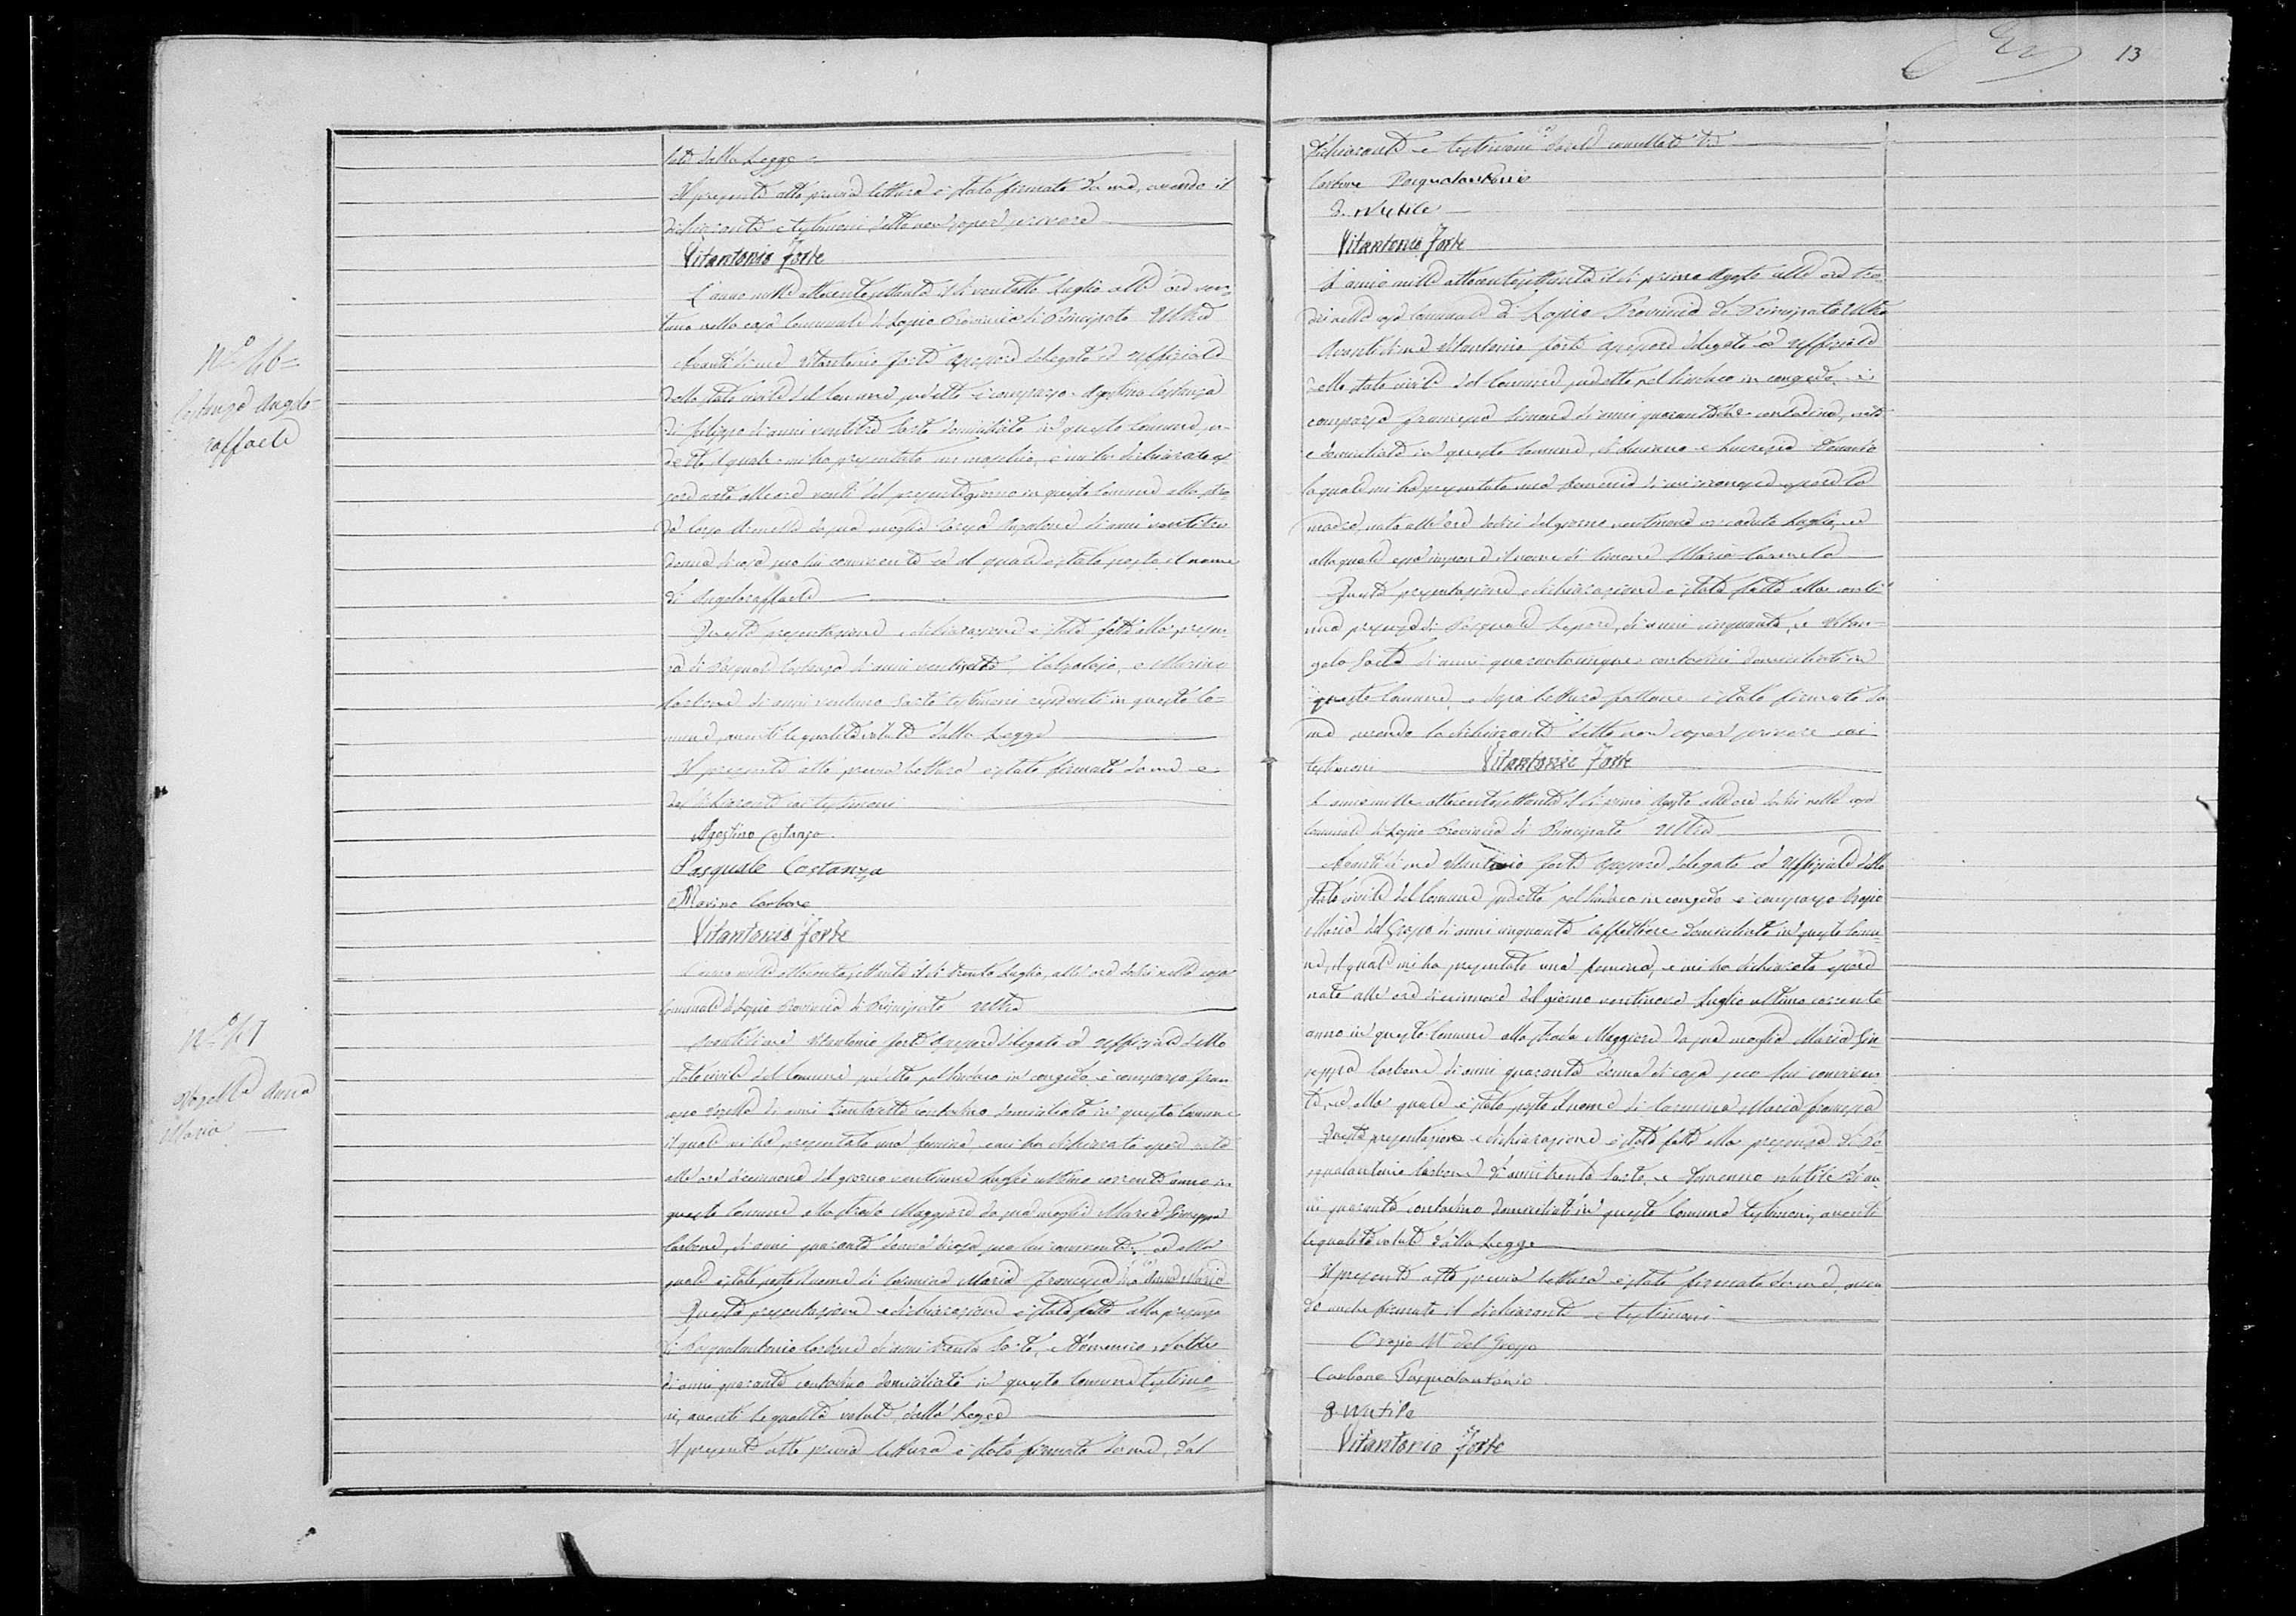 13
dalla Legge
Il presente atto previa lettura è stato firmato da me, avendo il
dichiarante e testimoni detto non saper scrivere
Vitantonio Forte
N.º 46
Costanza Angelo
raffaele
L'anno mille ottocentosettanta il dì ventotto Luglio alle ore ven
tuno nella casa Comunale di Lapio Provincia di Principato Ultra
Avanti di me Vitantonio Forte Assessore delegato ed Uffiziale
dello stato civile del Comune suddetto è comparso Agostino Costanza
di Filippo di anni ventitre Sarto domiciliato in questo Comune,
il quale mi ha presentato un maschio, e mi ha dichiarato es
sere nato alle ore venti del presente giorno in questo Comune alla stra
da da sua moglie di anni ventitre
donna di casa seco lui convivente ed al quale è stato posto il nome
di Angeloraffaele
Questa presentazione e dichiarazione è stata fatta alla presen
za di Pasquale Costanza di anni ventisette Calzolajo, e Marino
Carbone di anni ventuno Sarto testimoni residenti in questo Co
mune, aventi le qualità volute dalla Legge
Il presente atto previa lettura è stato firmato da me e
dal dichiarante coi testimoni
Agostino Costanza
Pasquale Costanza
Marino Carbone
Vitantonio Forte
N.º 47
Anna
Maria
L'anno mille ottocentosettanta il dì trenta Luglio, alle ore dodici nella casa
Comunale di Lapio Provincia di Principato Ultra
Avanti di me Vitantonio Forte Assessore delegato ed Uffiziale dello
stato civile del Comune suddetto pel Sindaco in congedo, è comparso Fran
di anni trentasette contadino domiciliato in questo Comune
il quale mi ha presentato una femina, e mi ha dichiarato essere nata
alle ore diecinnove del giorno ventinove Luglio ultimo corrente anno in
questo Comune alla strada Maggiore da sua moglie Maria Giuseppa
Carbone, di anni quaranta donna di casa seco lui convivente, ed alla
quale è stato posto il nome di Carmina Maria Francesca Anna Maria
Questa presentazione e dichiarazione è stata fatta alla presenza
di Pasqualantonio Carbone di anni trenta Sarto, e Domenico Nutile
di anni quaranta contadino domiciliati in questo Comune testimo
ni, aventi le qualità volute dalla Legge
Il presente atto previa lettura è stato firmato da me, dal
dichiarante e testimoni
Carbone Pasqualantonio
D. Nutile
Vitantonio Forte
L'anno mille ottocentosettanta il dì primo Agosto alle ore tre
dici nella casa Comunale di Lapio Provincia di Principato Ultra
Avanti di me Vitantonio Forte Assessore delegato ed Uffiziale
dello stato civile del Comune suddetto pel Sindaco in congedo, è
comparsa Francesca Simone di anni contadina, nata
e domiciliata in questo Comune,
la quale mi ha presentato una femina di cui riconosce essere la
madre, nata alle ore dodici del giorno ventinove caduto Luglio, ed
alla quale essa impone il nome di Simone Maria Carmela
Questa presentazione e dichiarazione è stata fatta alla conti
nua presenza di Pasquale Lepore, di anni cinquanta, e Vitan
gelo di anni quarantacinque contadini domiciliati in
questo Comune, e dopo lettura fattane è stato firmato da
me avendo la dichiarante detto non saper scrivere coi
testimoni
Vitantonio Forte
L'anno mille ottocentosettanta il dì primo Agosto alle ore dodici nella casa
Comunale di Lapio Provincia di Principato Ultra
Avanti di me Vitantonio Forte Assessore delegato ed Uffiziale dello
stato civile del Comune suddetto pel Sindaco in congedo è comparso Orazio
Maria del Grosso di anni cinquanta Caffettiere domiciliato in questo Comu
ne, il quale mi ha presentato una femina, e mi ha dichiarato essere
nata alle ore diecinnove del giorno ventinove Luglio ultimo corrente
anno in questo Comune alla strada Maggiore da sua moglie Maria Giu
seppa Carbone di anni quaranta donna di casa seco lui conviven
te, ed alla quale è stato posto il nome di Carmina Maria Francesca
Questa presentazione e dichiarazione è stata fatta alla presenza di Pa
squalantonio Carbone di anni trenta Sarto, e Domenico Nutile di an
ni quaranta contadino domiciliati in questo Comune testimoni, aventi
le qualità volute dalla Legge
Il presente atto previa lettura è stato firmato da me, aven
do anche firmato il dichiarante e testimoni
Orazio Mª del Grosso
Carbone Pasqualantonio
D. Nutile
Vitantonio Forte